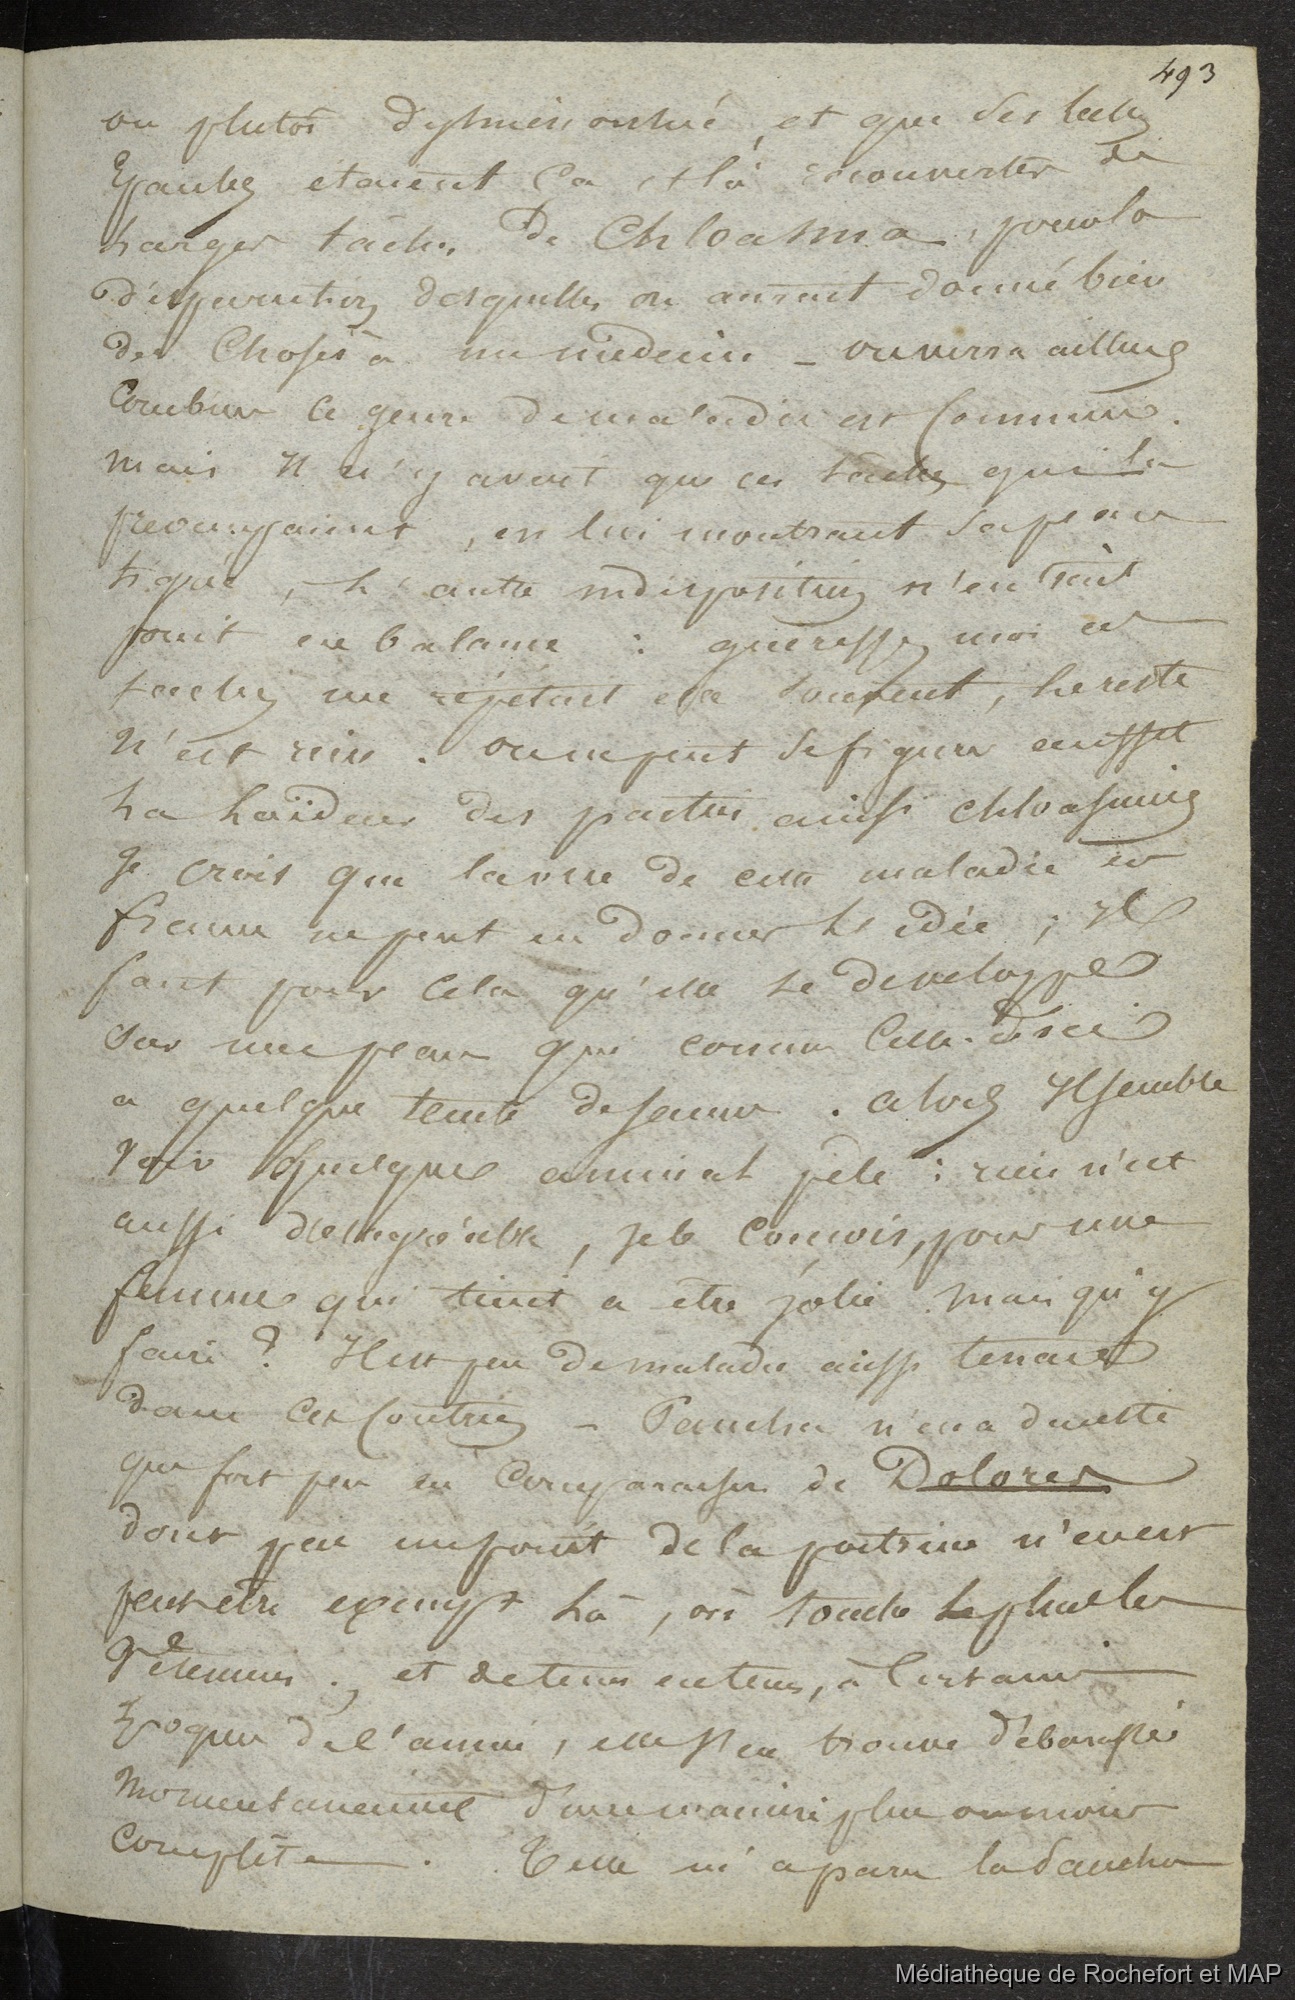 493
ou plutôt dysménorrhée, et que ses belles
Epaules étaient ça et là recouvertes de
Larges tâches de Chloasma, pour la
disparution desquelles on aurait donné bien
des Choses à un médecin _ on verra ailleurs
Combien ce genre de maladies est Commun.
mais Il n'y avait que ces tâches qui la
préoccupaient, en lui montrant sa peau
tigrée, L'autre indisposition n'entrait
point en balance : guérissez moi ces
taches me répétait elle souvent, le reste
N'est rien. on ne peut se figurer en effet
La Laideur des parties ainsi chloasmées
Je crois que la vue de cette maladie en
france ne peut en donner L'idée ; Il
faut pour cela qu'elle se développe
Sur une peau qui comme Celle d'ici
a quelque teinte de jaune. alors Il semble
Voir quelque animal pelé : rien n'est
aussi désagréable, je le conçois, pour une
femme qui tient a etre jolie mais qu'y
faire ? Il est peu de maladie aussi tenace
dans Ces Contrées _ Pancha n'en a du reste
que fort peu en Comparaison de Dolores
dont pas un point de la poitrine n'en est
peut etre exempt Là, où touche le plus les
Vêtemens ; et de tems en tems, à Certaines
Epoques de l'année, elle s'en trouve débarassée
Momentanément d'une manière plus ou moins
Complète. Telle m'a paru la Pancha
Médiathèque de Rochefort et MAP